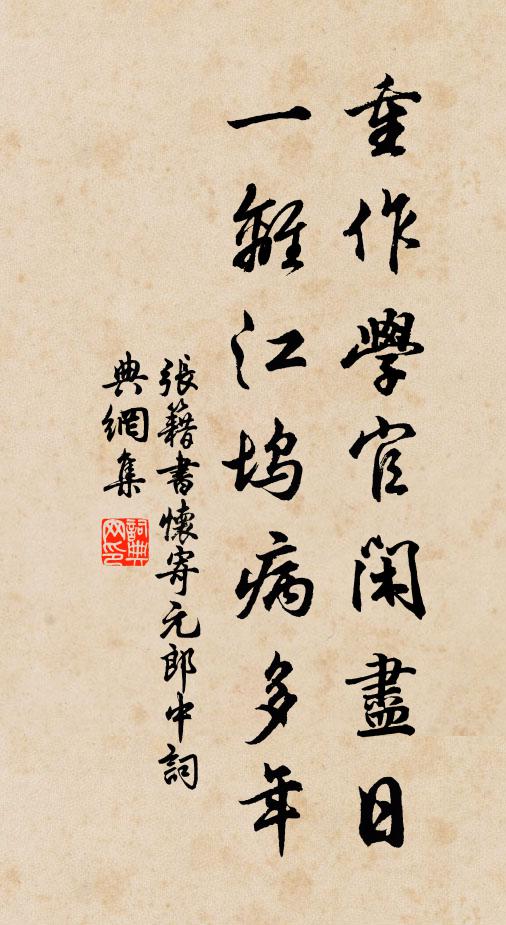 重作學官閑盡日
一離江塢病多年
張籍書懷寄元郎中詞
典網集
詞典
網印